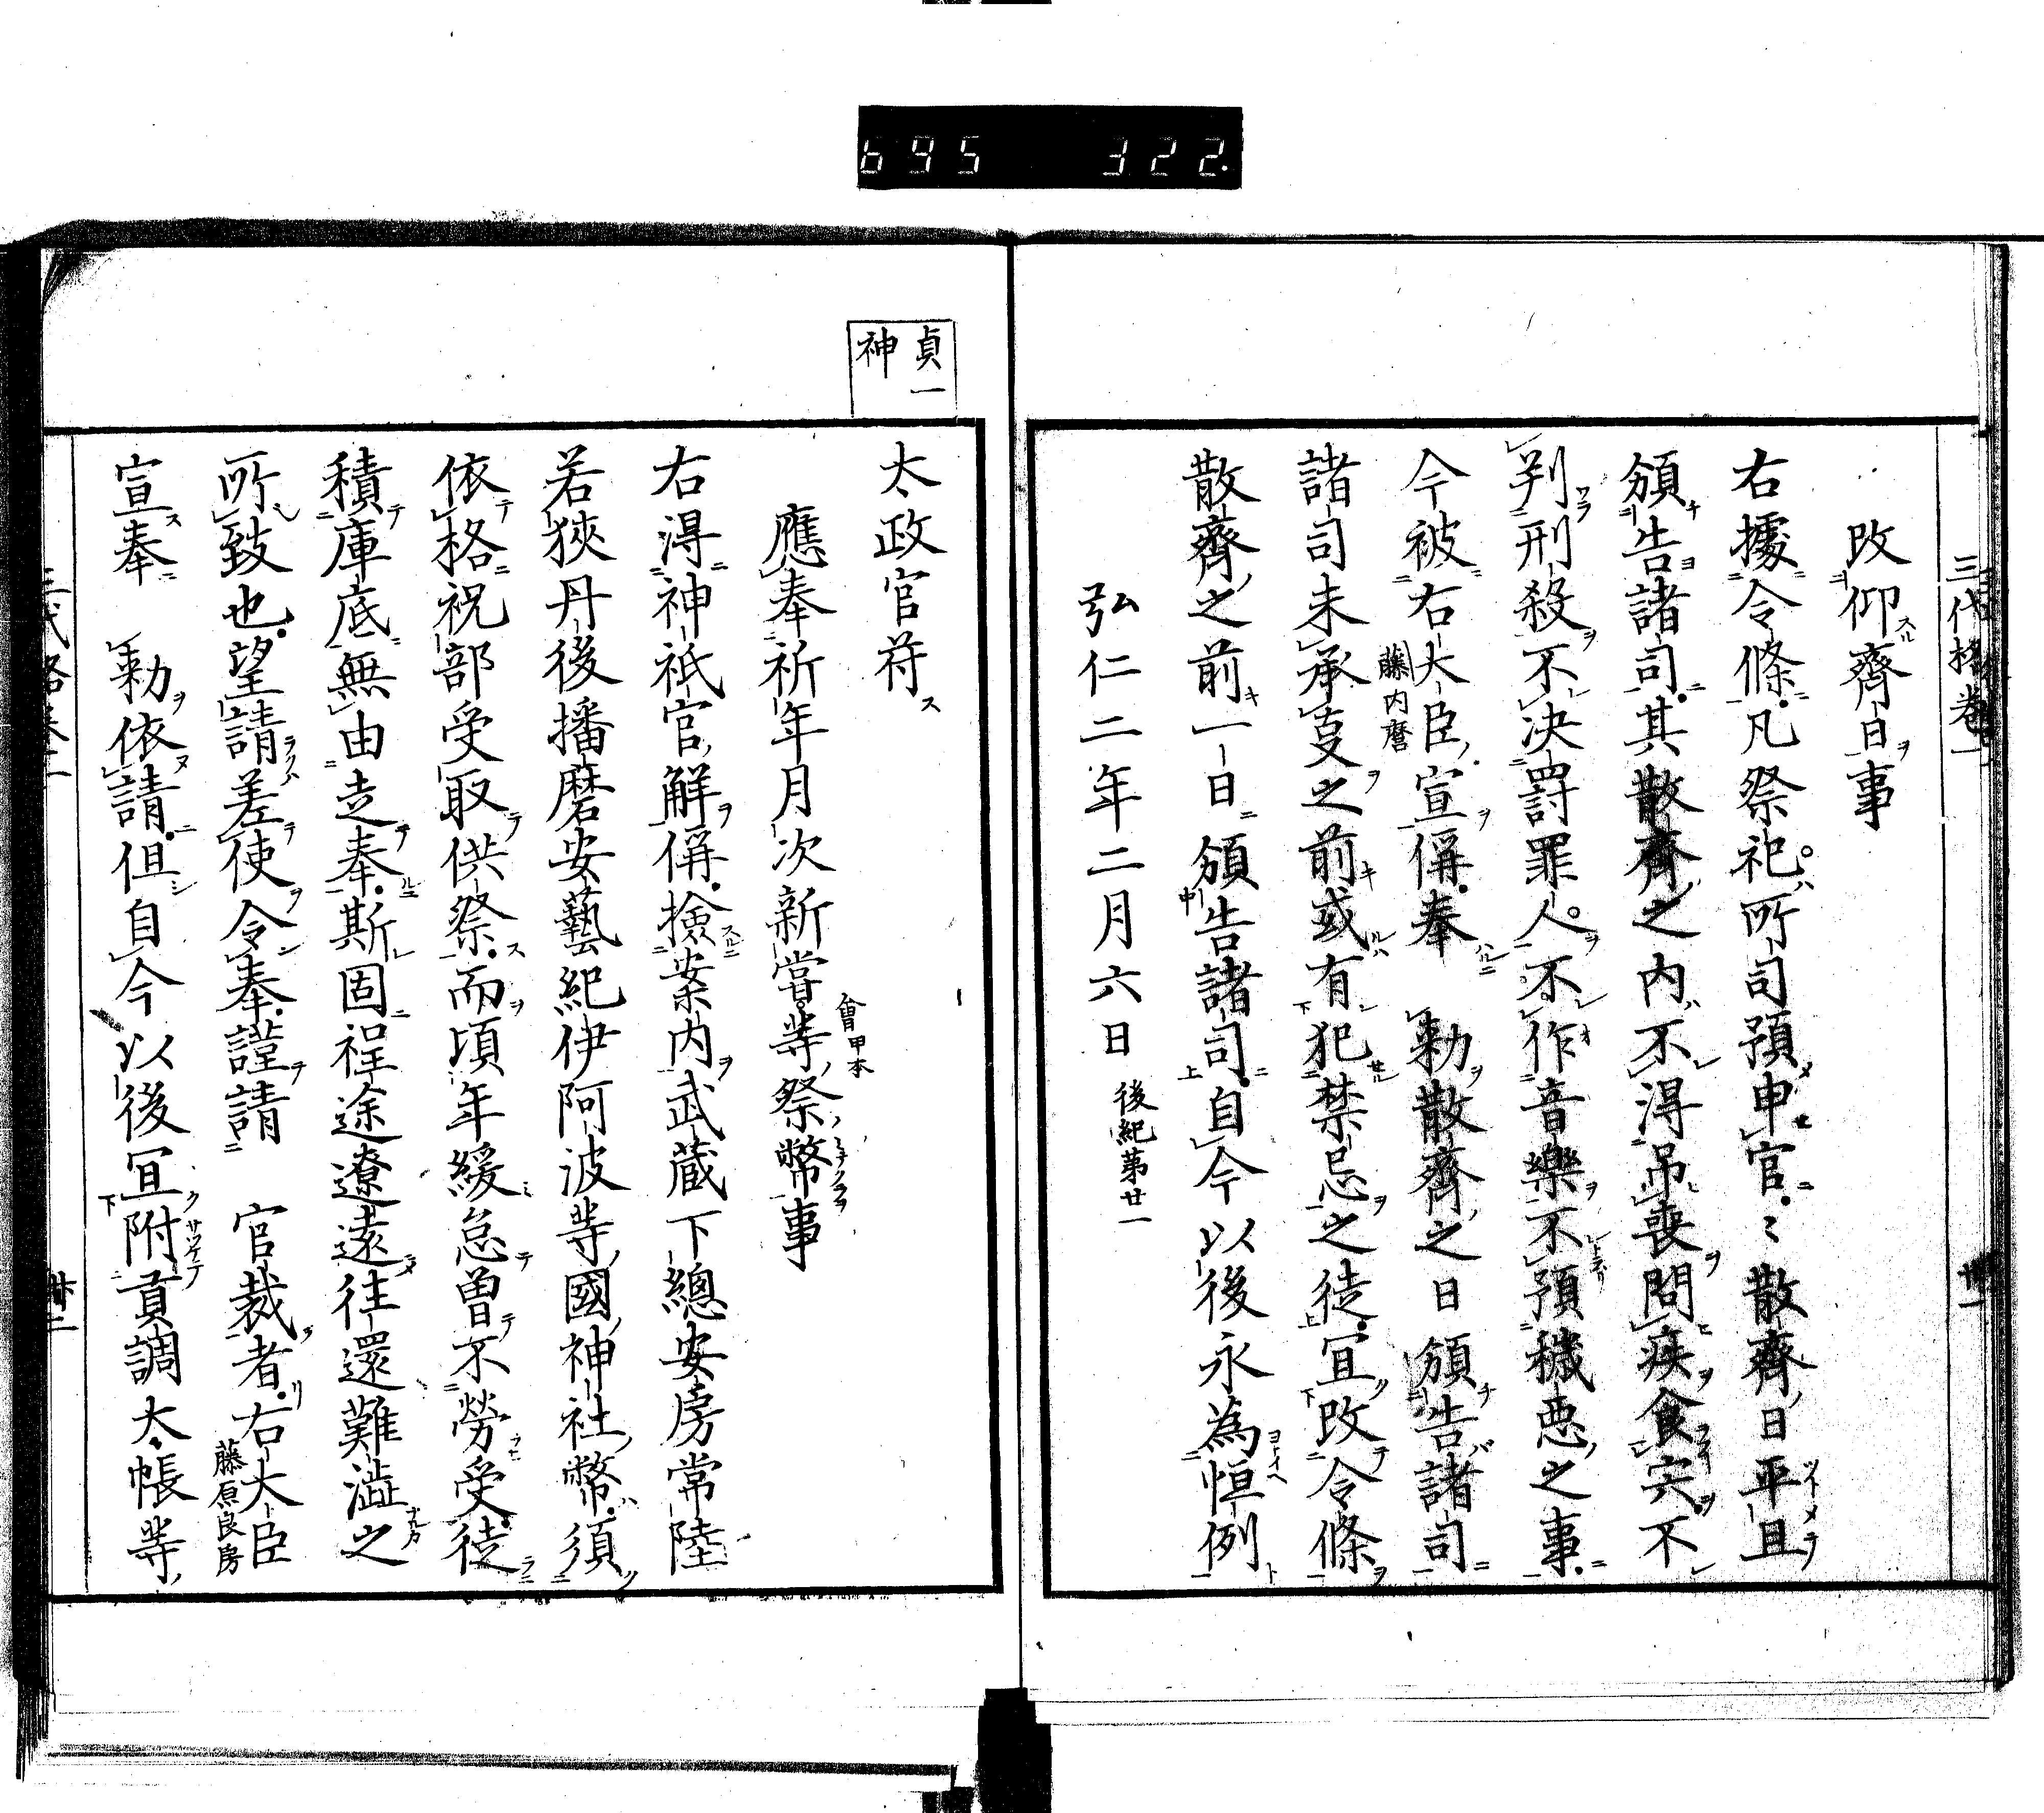 695 322.
三代格卷一 卅一
改仰齊日事
右據令條凡祭祀所司預申官〻散齊日平且
頒告諸司其散齊之内不得吊喪問疾食宍不
判刑殺不决罸罪人不作音樂不預穢惡之事
今被右大臣宣偁奉 勅散齊之日頒告諸司
藤内麿
諸司未承㕝之前或有犯禁忌之徒宜改令條
散齊之前一日頒告諸司自今以後永為恒例
弘仁二年二月六日 後紀第廿一
貞一
神
太政官符
應奉祈年月次新嘗等祭幣事
會甲本
右得神祇官解偁撿案内武蔵下總安房常陸
若狹丹後播磨安藝紀伊阿波等國神社幣須
依格祝部受取供祭而頃年緩怠曽不勞受徒
積庫底無由走奉斯固程途遼遠往還難澁之
所致也望請差使令奉謹請 官裁者右大臣
藤原良房
宣奉 勅依請但自今以後宜附貢調大帳等
三代格卷一 卅二